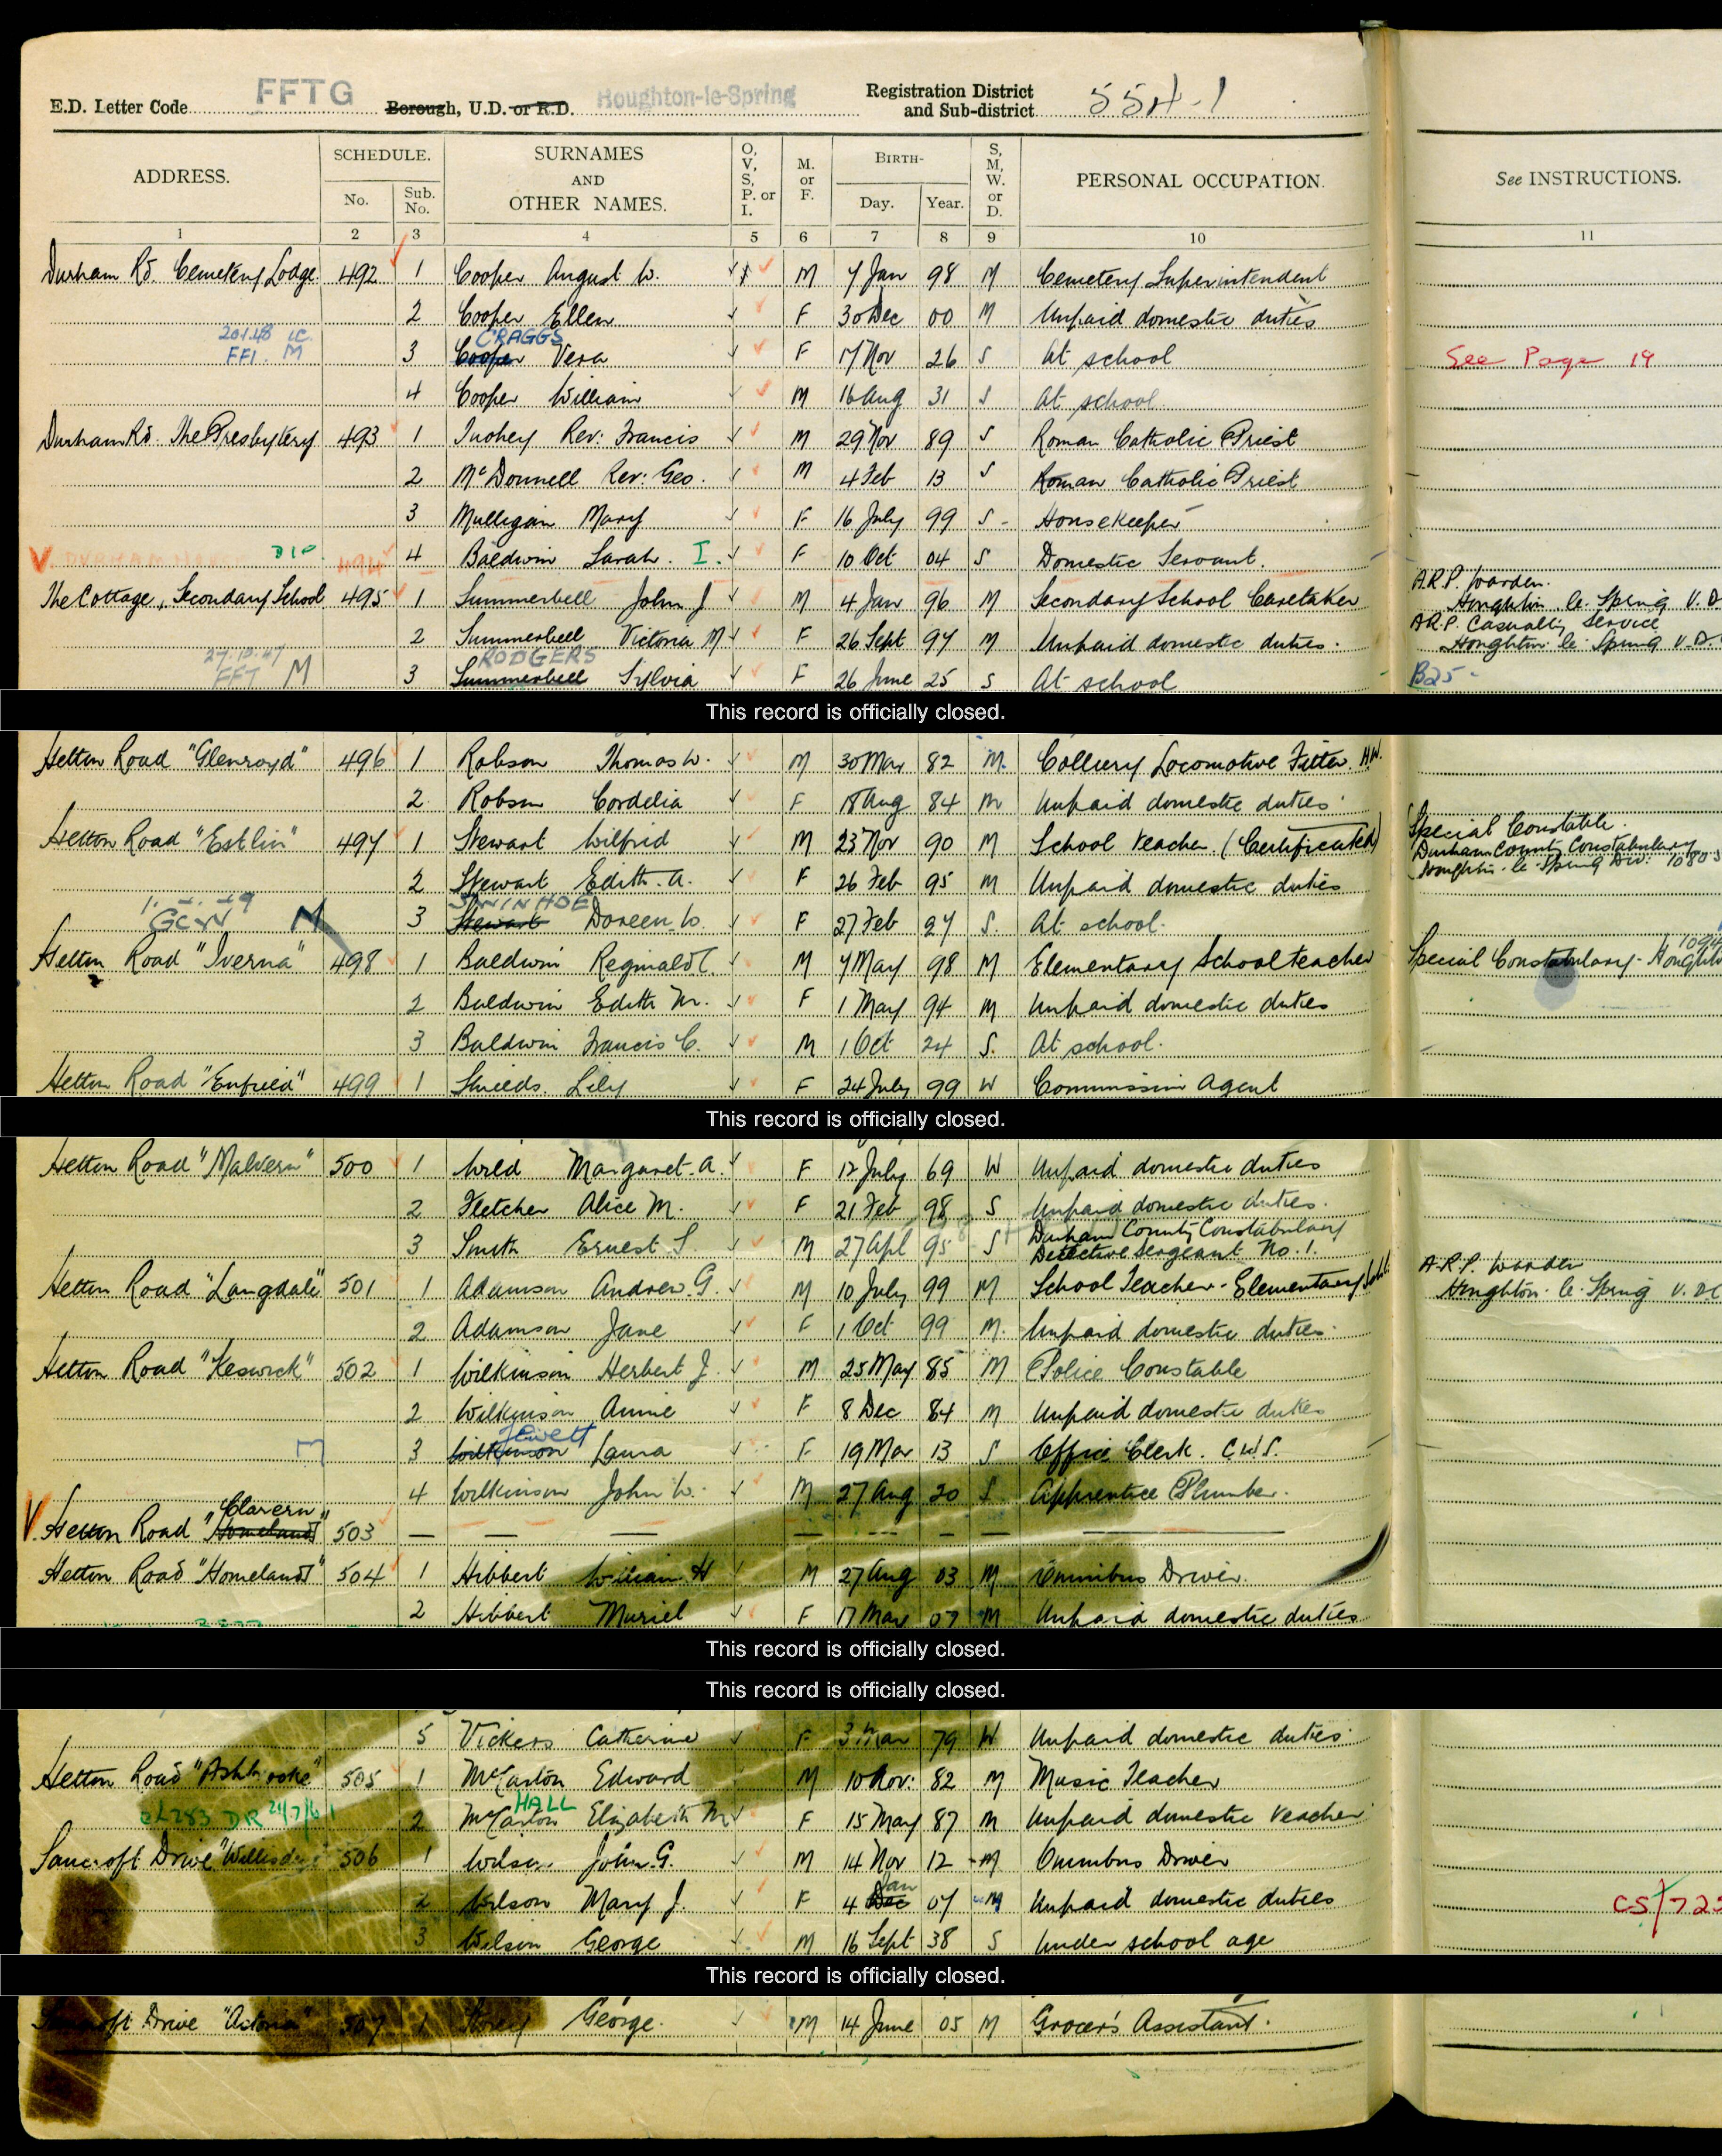 E.D. Letter Code FFTG Borough, U.D. or R.D. Houghton-le-Spring Registration District and Sub-district 554-1
ADDRESS. SCHEDULE. No. Sub. No. SURNAMES AND OTHER NAMES. O, V, S, P. or I. M. or F. BIRTH- Day. Year. S, M, W. or D. PERSONAL OCCUPATION. See INSTRUCTIONS.
1 2 3 4 5 6 7 8 9 10 11
Durham Rd. Cemetery Lodge. 492 1 Cooper August W. M 7 Jan 98 M Cemetery Superintendent
2 Cooper Ellen F 30 Dec 00 M Unpaid domestic duties
20.1.48 FFI. M CRAGGS
3 Cooper Vera F 17 Nov 26 S At school See Page 19
4 Cooper William M 16 Aug 31 S At school
Durham Rd. The Presbytery 493 1 Tuohey Rev: Francis M 29 Nov 89 S Roman Catholic Priest
2 McDonnell Rev: Geo. M 4 Feb 13 S Roman Catholic Priest
3 Mulligan Mary F 16 July 99 S Housekeeper
V. 494 4 Baldwin Sarah. I. F 10 Oct 04 S Domestic Servant.
The Cottage, Secondary School 495 1 Summerbell John J M 4 Jan 96 M Secondary School Caretaker A.R.P. Warden. Houghton le Spring U.D.
2 Summerbell Victoria M F 26 Sept 97 M Unpaid domestic duties. A.R.P. Casualty Service Houghton le Spring U.D.
27.10.47 FFT M RODGERS
3 Summerbell Sylvia F 26 June 25 S At school B25-
This record is officially closed.
Hetton Road "Glenroyd" 496 1 Robson Thomas W. M 30 Mar 82 M. Colliery Locomotive Fitter. H.W.
2 Robson Cordelia F 18 Aug 84 M Unpaid domestic duties
Hetton Road "Estlin" 497 1 Stewart Wilfrid M 23 Nov 90 M School Teacher. (Certificated) Special Constable. Durham County Constabulary Houghton-le-Spring Div: 1080
2 Stewart Edith A. F 26 Feb 95 M Unpaid domestic duties
GCW M SWINHOE
3 Stewart Doreen W. F 27 Feb 27 S. At school.
Hetton Road "Iverna" 498 1 Baldwin Reginald C M 7 May 98 M Elementary Schoolteacher Special Constabulary-
2 Baldwin Edith M. F 1 May 94 M Unpaid domestic duties
3 Baldwin Francis C. M 1 Oct 24 S. At school.
Hetton Road "Enfield" 499 1 Shields. Lily F 24 July 99 W Commission Agent
This record is officially closed.
Hetton Road "Malvern" 500 1 Wild Margaret. A. F 12 July 69 W Unpaid domestic duties
2 Fletcher Alice M. F 21 Feb 98 S Unpaid domestic duties.
3 Smith Ernest S. M 27 Apl 95 S Durham County Constabulary Detective Sergeant No. 1.
Hetton Road "Langdale" 501 1 Adamson Andrew. G. M 10 July 99 M School Teacher - Elementary A.R.P. Warden Houghton-le-Spring U.D.C
2 Adamson Jane F 1 Oct 99 M. Unpaid domestic duties.
Hetton Road "Keswick" 502 1 Wilkinson Herbert J. M 25 May 85 M Police Constable
2 Wilkinson Annie F 8 Dec 84 M Unpaid domestic duties
Jewett
3 Wilkinson Laura F 19 Mar 13 S Office Clerk. C.W.S.
4 Wilkinson John W. M 27 Aug 20 S. Apprentice Plumber.
Clavern
V. Hetton Road "Homelands" 503
Hetton Road "Homelands" 504 1 Hibbert William H M 27 Aug 03 M. Omnibus Driver.
2 Hibbert Muriel F 17 Mar 07 M Unpaid domestic duties
This record is officially closed.
This record is officially closed.
5 Vickers Catherine F 3 Mar 79 W Unpaid domestic duties
Hetton Road "Ashbrooke" 505 1 McCarton Edward M 10 Nov: 82 M Music Teacher
CL283 DR HALL
2 McCarton Elizabeth M F 15 May 87 M Unpaid domestic teacher
Sancroft Drive 506 1 Wilson John. G. M 14 Nov 12 M Omnibus Driver
Jan
2 Wilson Mary J. F 4 Dec 07 M Unpaid domestic duties CS/72
3 Wilson George M 16 Sept 38 S Under school age
This record is officially closed.
Sancroft Drive "Astoria" 507 1 George. M 14 June 05 M Grocer's Assistant.